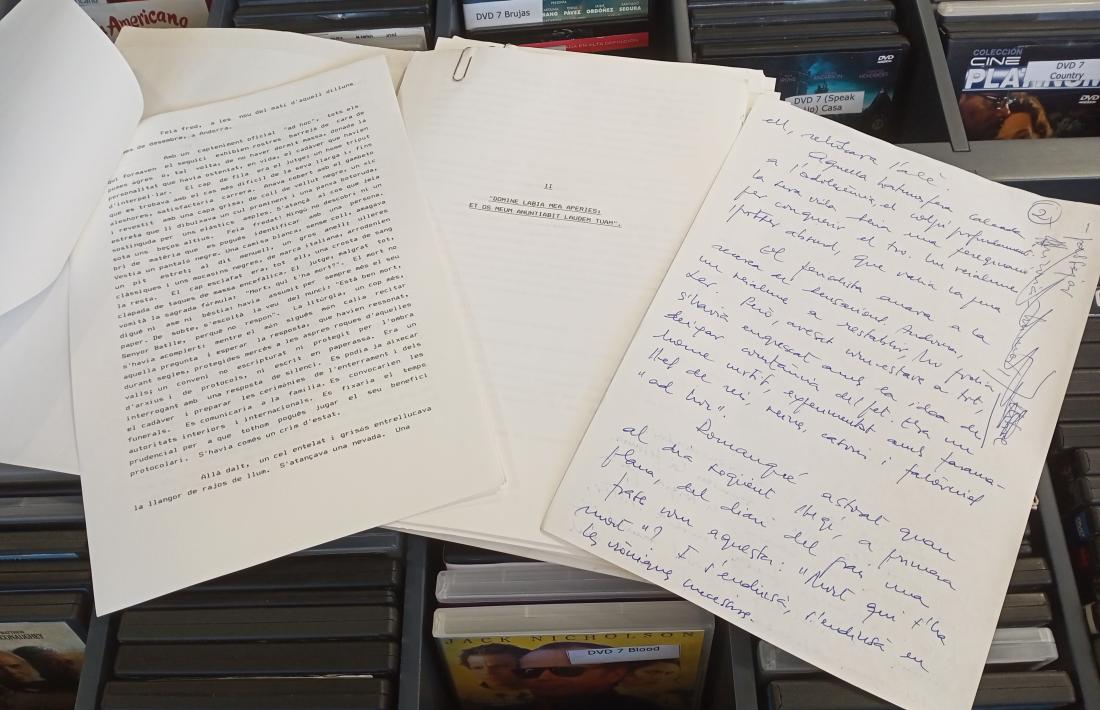 Americano
DVD 7 Brujas
DVD 7 (Speak
Up) Casa
COLECCIÓN
CINE
PLATINUM
DVD 7
Country
DVD
Feia fred, a les nou del matí d'aquell dilluns
mes de desembre, a Andorra.
Amb un capteniment oficial "ad hoc", tots els
que formaven el seguici exhibien rostres barreja de cara de
pomes agres o, tal volta, de no haver dormit massa, donada la
personalitat que havia ostentat, en vida, el cadàver que havien
d'interpel·lar. El cap de fila era el jutge: un home triput
que es trobava amb el cas més difícil de la seva llarga i, fins
aleshores, satisfactòria carrera. Anava cobert amb el gambeto
i revestit amb una capa grisa; de coll de vellut negre; un nic
estreta que li dibuixava un cul prominent i una panxa botoruda,
sostinguda per uns elàstics amples. S'atançà al cos que jeia
sota uns beços altius. Feia pietat! Ningú no descobrí ni un
bri de matèria que es pogués identificar amb una persona.
Vestia un pantaló negre. Una camisa blanca, sense coll, amagava
un pit estret; al dit menuell, un gros anell; ulleres
clàssiques i uns mocasins negres, de marca italiana, arrodonien
la resta. El cap esclafat era, tot ell, una crosta de sang
clapada de taques de massa encefàlica. El jutge, malgrat tot,
vomità la sagrada fórmula: "Mort, qui t'ha mort?". El mort no
digué ni ase ni bèstia; havia assumit per sempre més el seu
paper. De sobte, s'escoltà la veu del nunci: "Està ben mort,
Senyor Batlle, perquè no respon". La litúrgia, un cop més,
s'havia acomplert; mentre el món sigués món calia recitar
aquella pregunta i esperar la resposta; que havien ressonat,
durant segles, protegides mercès a les aspres roques d'aquelles
valls; un conveni no escripturat ni protegit per l'ombra
d'arxius i de protocols, ni escrit en paperassa. Era un
interrogant amb una resposta de silenci. Es podia ja aixecar
el cadàver i preparar les cerimònies de l'enterrament i dels
funerals. Es comunicaria a la família. Es convocarien les
autoritats interiors i internacionals. Es fixaria el temps
prudencial per a que tothom pogués jugar el seu benefici
protocolari. S'havia comès un crim d'estat.
Allà dalt, un cel entelat i grisós entrellucava
la llangor de rajos de llum. S'atançava una nevada. Una
II
"DOMINE LABIA MEA APERIES;
ET OS MEUM ANUNTIABIT LAUDEM TUAM".
2
ell, relliscava l'alè.
Aquella havia
a l'adolescència, el colpí profundament.
la seva vida tenia una
per conquerir el tro. Un reialme
potser absurd, que venia la pua
El fenòmen anava a la
Andorra,
un reialme a restablir, ho podia
ser. Però, avesat com estava a tot,
s'havia engrescat amb la idea de
deixar constància del fet. Era un
home curtit, experimentat amb
llet de reis, reines, i
"ad hoc".
Romangué astorat quan
al dia següent llegí, a primera
plana, del diari del país una
frase com aquesta: "Mort qui t'ha
mort"? I s'endinsà, s'endinsà en
les cròniques necesàries.
JACK NICHOLSON
DVD 7 Blood